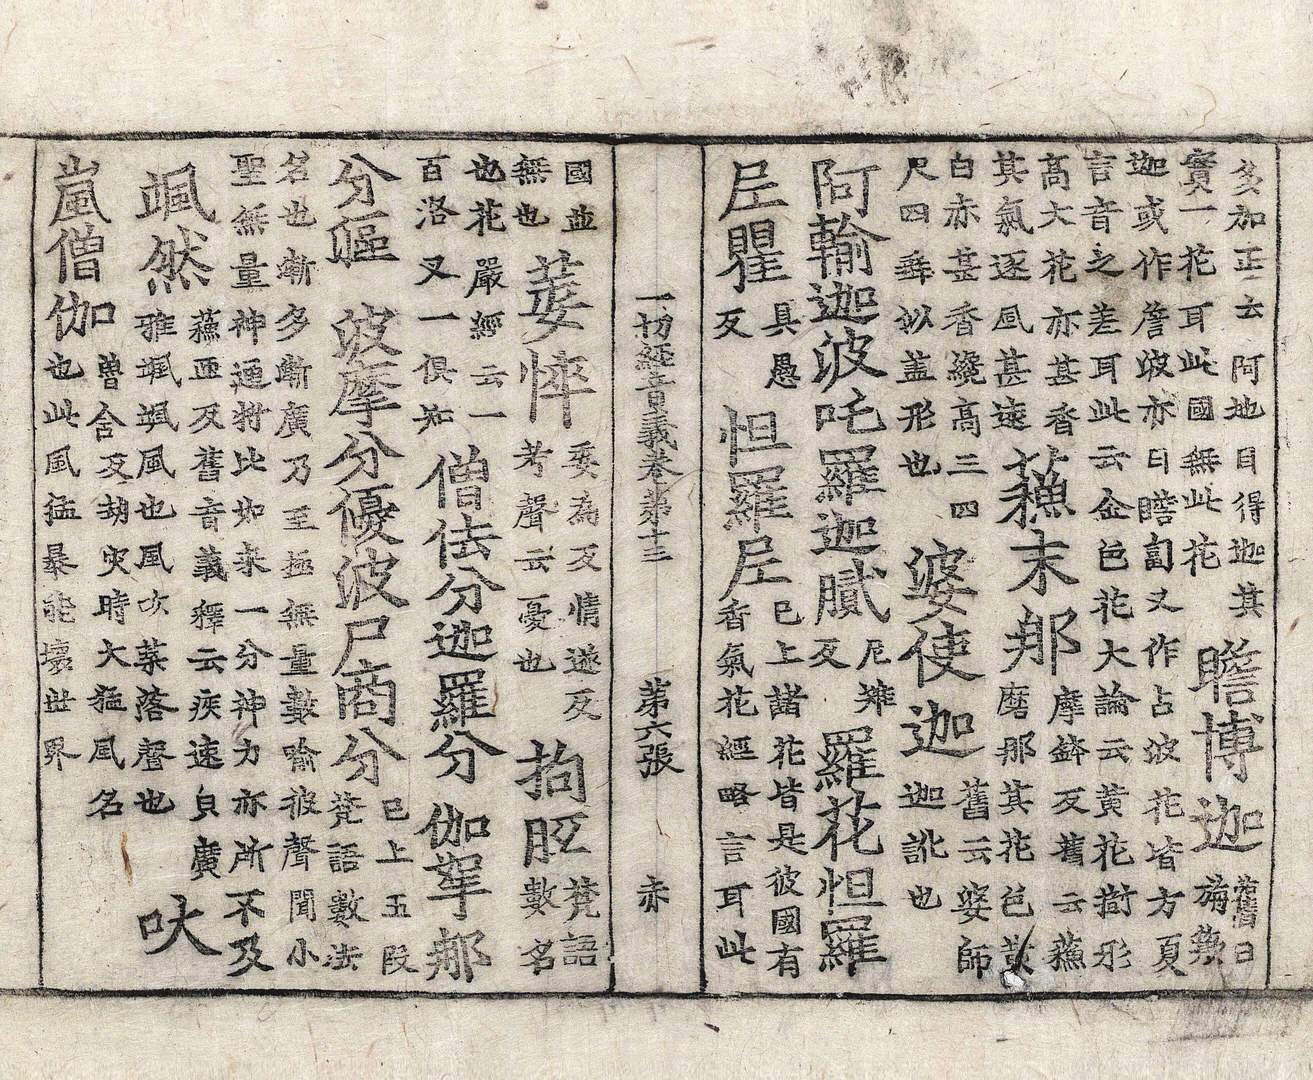 多加正云阿地目得迦其
實一花耳此國無此花
瞻博迦
旃簸
迦或作詹波亦曰瞻匐又作占波花皆方夏
言音之差耳此云金色花大論云黃花樹形
高大花亦甚香
其氣逐風甚遠
蘓末那
摩鉢反舊云蘓
磨那其花色黃
白亦甚香繞高三四
尺四垂似蓋形也
婆使迦
舊云婆師
迦訛也
阿輸迦波吒羅迦膩
尼雉
反
羅花怛羅
尼瞿
具愚
反
怛羅尼
已上諸花皆是彼國有
香氣花經略言耳此
一切經音義卷第十三 第六張 赤
國並
無也
萎悴
委為反情遂反
考聲云憂也
拘胝
梵語
數名
也花嚴經云一
百洛叉一俱知
僧佉分迦羅分伽拏那
分漚波摩分優波尸商分
已上五段
梵語數法
名也漸多漸廣乃至極無量數喻彼聲聞小
聖無量神通將比如来一分神力亦所不及
颯然
蘓匝反舊音義釋云疾速皃廣
雅颯颯風也風吹葉落聲也
吠
嵐僧伽
曽舍反胡災時大猛風名
也此風猛暴能壞世界